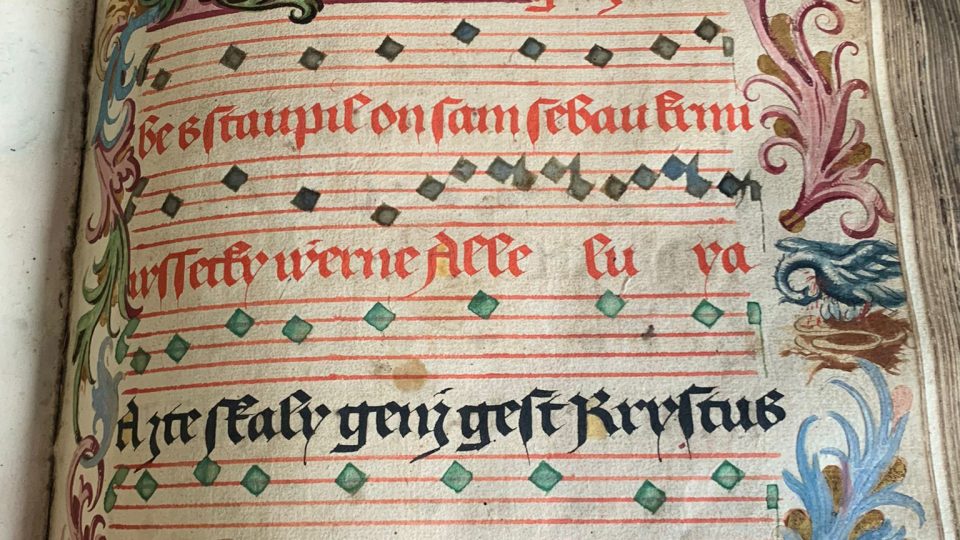 be gstaupil on sam sebau krmi
wssecky wierne Alle lu ya
Azte skaly genz gest Krystus